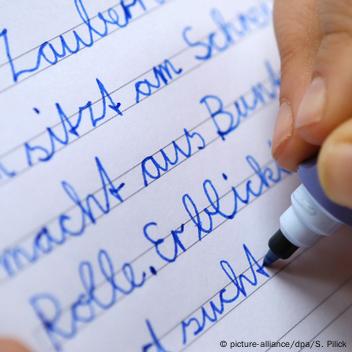 Zauber
sitzt am Schrei
macht aus Bunt
Rolle. Erblickt
sucht
© picture-alliance/dpa/S. Pilick